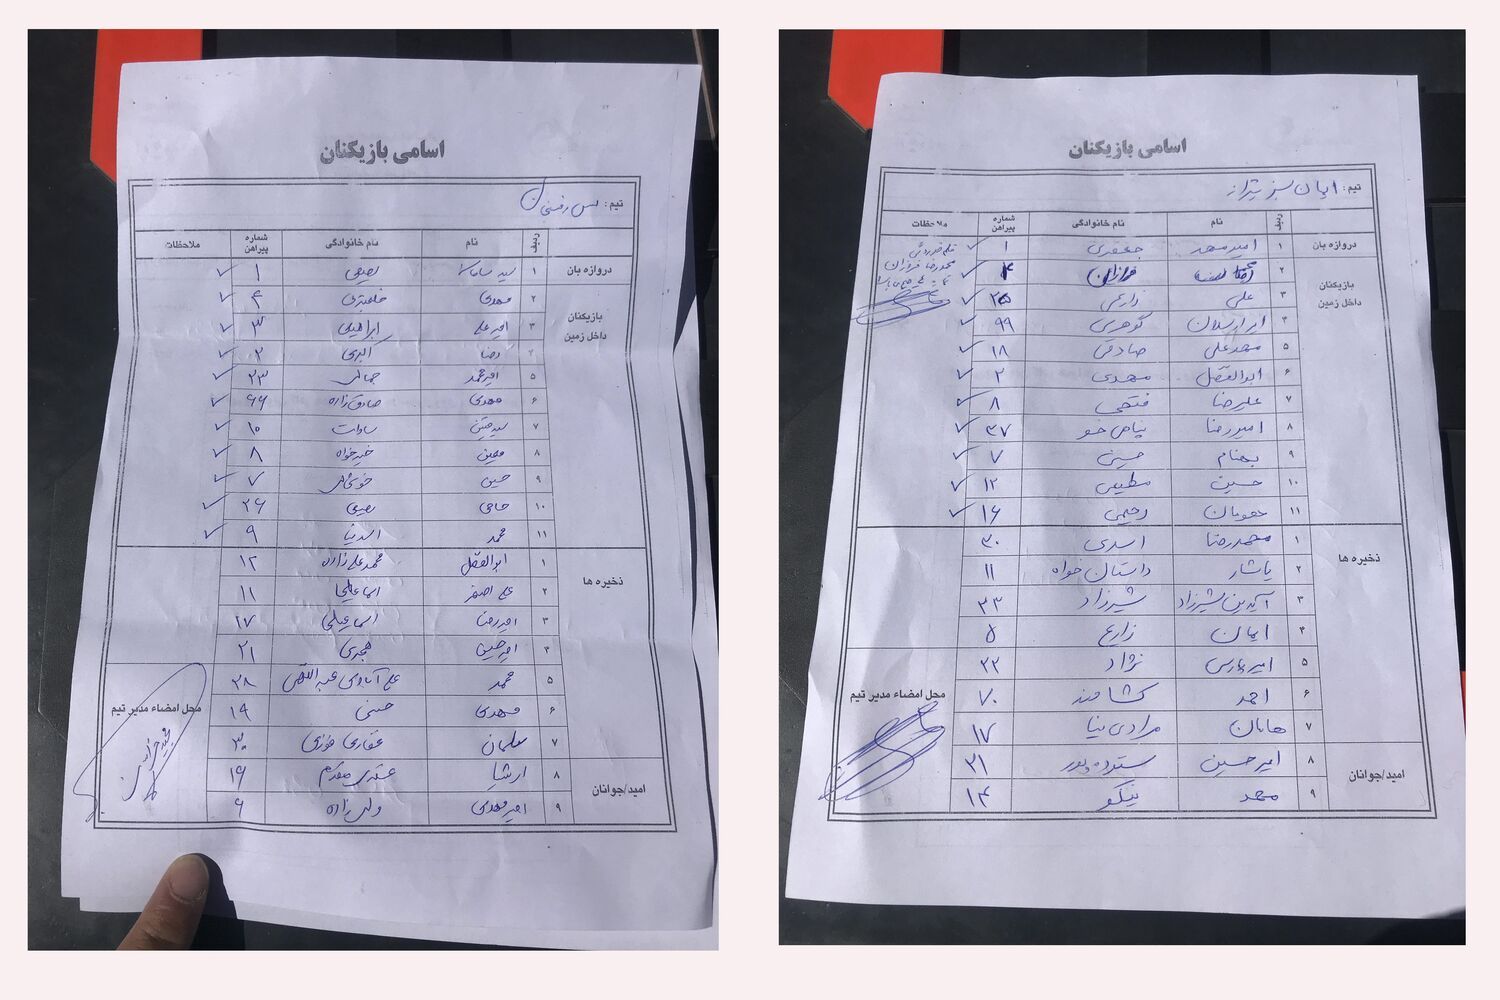 اسامی بازیکنان
تیم: مس رفسنجان
ردیف نام نام خانوادگی شماره پیراهن ملاحظات
دروازه بان ۱ سید سامان نصیحی ۱
بازیکنان داخل زمین
۲ مهدی ۴
۳ امیرعلی ابراهیمی ۳
۴ رضا اکبری ۲
۵ امیرمحمد جمالی ۲۳
۶ مهدی صادق‌زاده ۶۶
۷ سید متین سادات ۱۰
۸ معین خیرخواه ۸
۹ حسین ۷
۱۰ حامی نصیحی ۲۶
۱۱ محمد ۹
ذخیره ها
۱ ابوالفضل محمد علیزاده ۱۲
۲ علی اصغر اسماعیلی ۱۱
۳ امیررضا اسماعیلی ۱۷
۴ امیرحسین هجری ۲۱
۵ محمد علی آبادی عبدالهی ۲۸
۶ مهدی حسنی ۱۹
۷ سلمان غفاری ۳۰
امید/جوانان
۸ ارشیا عسگری مقدم ۱۹
۹ امیرمهدی ولی زاده ۶
محل امضاء مدیر تیم
اسامی بازیکنان
تیم: ایمان سبز شیراز
ردیف نام نام خانوادگی شماره پیراهن ملاحظات
دروازه بان ۱ امیرمهد جعفری ۱
بازیکنان داخل زمین
۲ محمد رضا فروزان ۴
۳ علی زارعی
۴ امیرارسلان گوهری ۹۹
۵ مهدعلی صادقی ۱۸
۶ ابوالفضل مهدی ۲
۷ علیرضا فتحی ۸
۸ امیررضا نیاحی خو ۳۷
۹ بهنام حسینی ۷
۱۰ حسین مطیعی ۱۲
۱۱ رحیمی ۱۶
قلم خوردگی
محمدرضا فروزان
ذخیره ها
۱ محمدرضا اسدی ۳۰
۲ یاشار داستان خواه ۱۱
۳ آیدین شیرزاد شیرزاد ۳۳
۴ ایمان زارع ۵
۵ امیرپارسی نژاد ۲۲
۶ احمد کشامند ۷۰
۷ هامان مرادی نیا ۱۷
امید/جوانان
۸ امیرحسین ستوده پور ۲۱
۹ مهد نیکو ۱۴
محل امضاء مدیر تیم